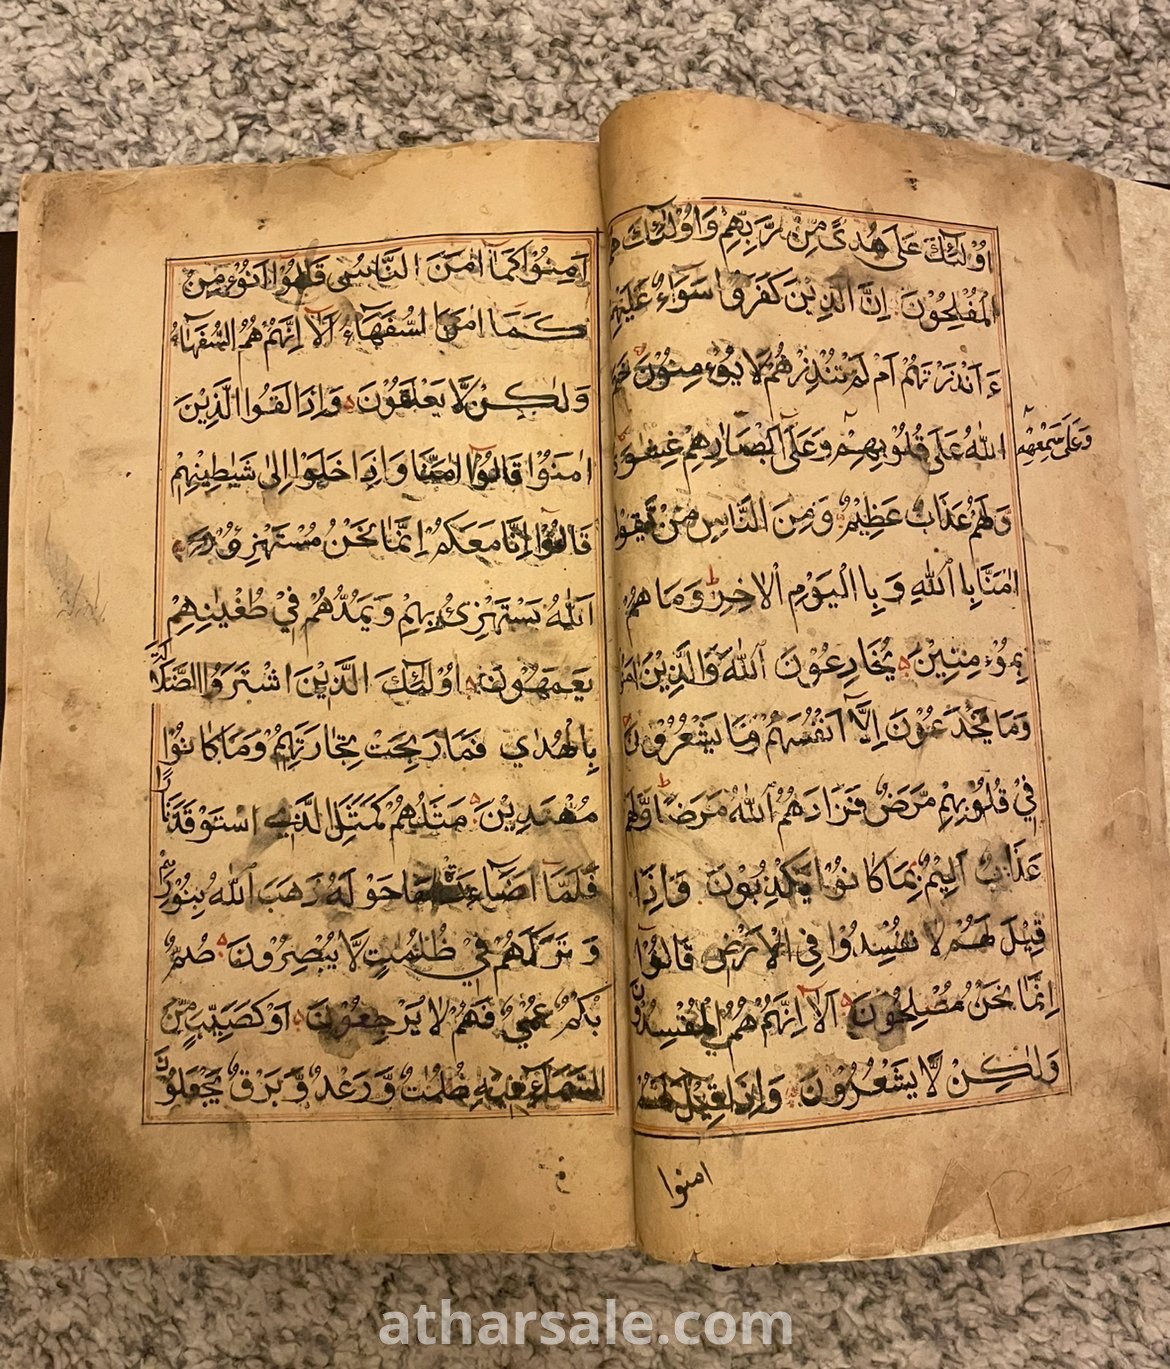 اُوْلٰٓئِكَ عَلٰى هُدًى مِّنْ رَّبِّهِمْ وَاُوْلٰٓئِكَ هُمُ
الْمُفْلِحُوْنَ اِنَّ الَّذِيْنَ كَفَرُوْا سَوَآءٌ عَلَيْهِمْ
ءَاَنْذَرْتَهُمْ اَمْ لَمْ تُنْذِرْهُمْ لَا يُؤْمِنُوْنَ خَتَمَ
اللّٰهُ عَلٰى قُلُوْبِهِمْ وَعَلٰٓى اَبْصَارِهِمْ غِشَاوَةٌ
وَعَلٰى سَمْعِهِمْ
وَلَهُمْ عَذَابٌ عَظِيْمٌ وَمِنَ النَّاسِ مَنْ يَّقُوْلُ
اٰمَنَّا بِاللّٰهِ وَبِالْيَوْمِ الْاٰخِرِ وَمَا هُمْ
بِمُؤْمِنِيْنَ يُخَادِعُوْنَ اللّٰهَ وَالَّذِيْنَ اٰمَنُوْا
وَمَا يَخْدَعُوْنَ اِلَّآ اَنْفُسَهُمْ وَمَا يَشْعُرُوْنَ
فِيْ قُلُوْبِهِمْ مَّرَضٌ فَزَادَهُمُ اللّٰهُ مَرَضًا وَّلَهُمْ
عَذَابٌ اَلِيْمٌ بِمَا كَانُوْا يَكْذِبُوْنَ وَاِذَا
قِيْلَ لَهُمْ لَا تُفْسِدُوْا فِى الْاَرْضِ قَالُوْٓا
اِنَّمَا نَحْنُ مُصْلِحُوْنَ اَلَآ اِنَّهُمْ هُمُ الْمُفْسِدُوْنَ
وَلٰكِنْ لَّا يَشْعُرُوْنَ وَاِذَا قِيْلَ لَهُمْ
امنوا
اٰمِنُوْا كَمَآ اٰمَنَ النَّاسُ قَالُوْٓا اَنُؤْمِنُ
كَمَآ اٰمَنَ السُّفَهَآءُ اَلَآ اِنَّهُمْ هُمُ السُّفَهَآءُ
وَلٰكِنْ لَّا يَعْلَمُوْنَ وَاِذَا لَقُوا الَّذِيْنَ
اٰمَنُوْا قَالُوْٓا اٰمَنَّا وَاِذَا خَلَوْا اِلٰى شَيٰطِيْنِهِمْ
قَالُوْٓا اِنَّا مَعَكُمْ اِنَّمَا نَحْنُ مُسْتَهْزِءُوْنَ
اَللّٰهُ يَسْتَهْزِئُ بِهِمْ وَيَمُدُّهُمْ فِيْ طُغْيٰنِهِمْ
يَعْمَهُوْنَ اُوْلٰٓئِكَ الَّذِيْنَ اشْتَرَوُا الضَّلٰلَةَ
بِالْهُدٰى فَمَا رَبِحَتْ تِّجَارَتُهُمْ وَمَا كَانُوْا
مُهْتَدِيْنَ مَثَلُهُمْ كَمَثَلِ الَّذِى اسْتَوْقَدَ نَارًا
فَلَمَّآ اَضَآءَتْ مَا حَوْلَهٗ ذَهَبَ اللّٰهُ بِنُوْرِهِمْ
وَتَرَكَهُمْ فِيْ ظُلُمٰتٍ لَّا يُبْصِرُوْنَ صُمٌّ
بُكْمٌ عُمْيٌ فَهُمْ لَا يَرْجِعُوْنَ اَوْ كَصَيِّبٍ مِّنَ
السَّمَآءِ فِيْهِ ظُلُمٰتٌ وَّرَعْدٌ وَّبَرْقٌ يَجْعَلُوْنَ
atharsale.com